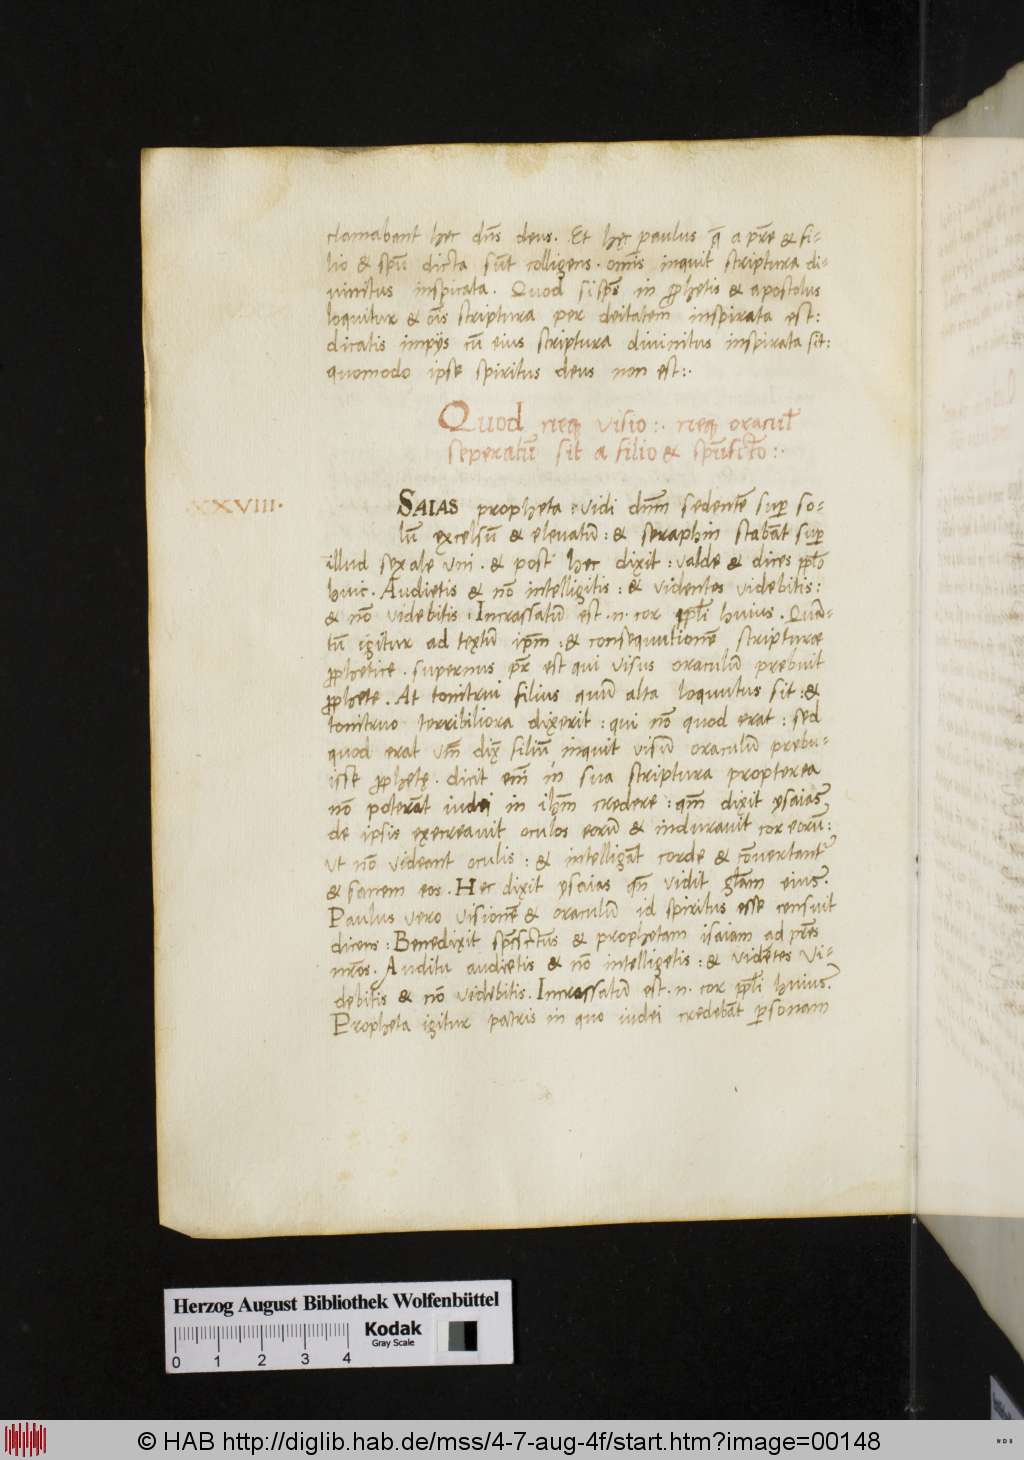 clamabant hec dn̄s deus. Et hęc paulus q̄ a pr̄e & fi-
lio & spū dicta sūt colligens. omīs inquit scriptura di-
uinitus inspirata. Quod si sp̄s in ꝓphetis & apostolus
loquitur & oīs scriptura per deitatem inspirata est:
dicatis impijs cū eius scriptura diuinitus inspirata sit:
quomodo ipse spiritus deus non est:.
Quod neqꝫ visio:. neqꝫ oracul̄
seperatū sit a filio & spū sc̄to:.
XXVIII.
SAIAS propheta: vidi dn̄m sedentē suꝑ so-
lū excelsū & eleuatū: & seraphin stabāt suꝑ
illud sex ale vni. & post hec dixit: valde & dices ppl̄o
huic. Audietis & nō intelligitis: & videntes videbitis:
& nō videbitis. Incrassatū est.n. cor ppl̄i huius. Quā-
tū igitur ad textū ip̄m: & consequutionē scripturæ
ꝓphetice. supernus pr̄ est qui visus oraculū prebuit
ꝓphete. At tonitrui filius quū alta loquutus sit: &
tonitruo terribiliora dixerit: qui nō quod erat: sed
quod erat vn̄ dix̄ filiū inquit visū oraculū prebu-
isse ꝓphetę. dicit em̄ in sua scriptura propterea
nō poterāt iudei in ih̄m credere: qm̄ dixit ysaias
de ipsis execreauit oculos eorū & indurauit cor eorū:
vt nō videant oculis: & intelligāt corde & cōuertantr̄
& sanem eos. Hec dixit ysaias qn̄ vidit gl̄am eius.
Paulus vero visionē & oraculū id spiritus esse censuit
dicens: Benedixit sp̄s sctūs & prophetam isaiam ad pr̄es
nr̄os. Auditu audietis & nō intelligetis: & vidētes vi-
debitis & nō videbitis. Incrassatū est.n. cor ppl̄i huius.
Propheta igitur patris in quo iudei credebāt ꝑsonam
Herzog August Bibliothek Wolfenbüttel
Kodak
Gray Scale
0 1 2 3 4
© HAB http://diglib.hab.de/mss/4-7-aug-4f/start.htm?image=00148